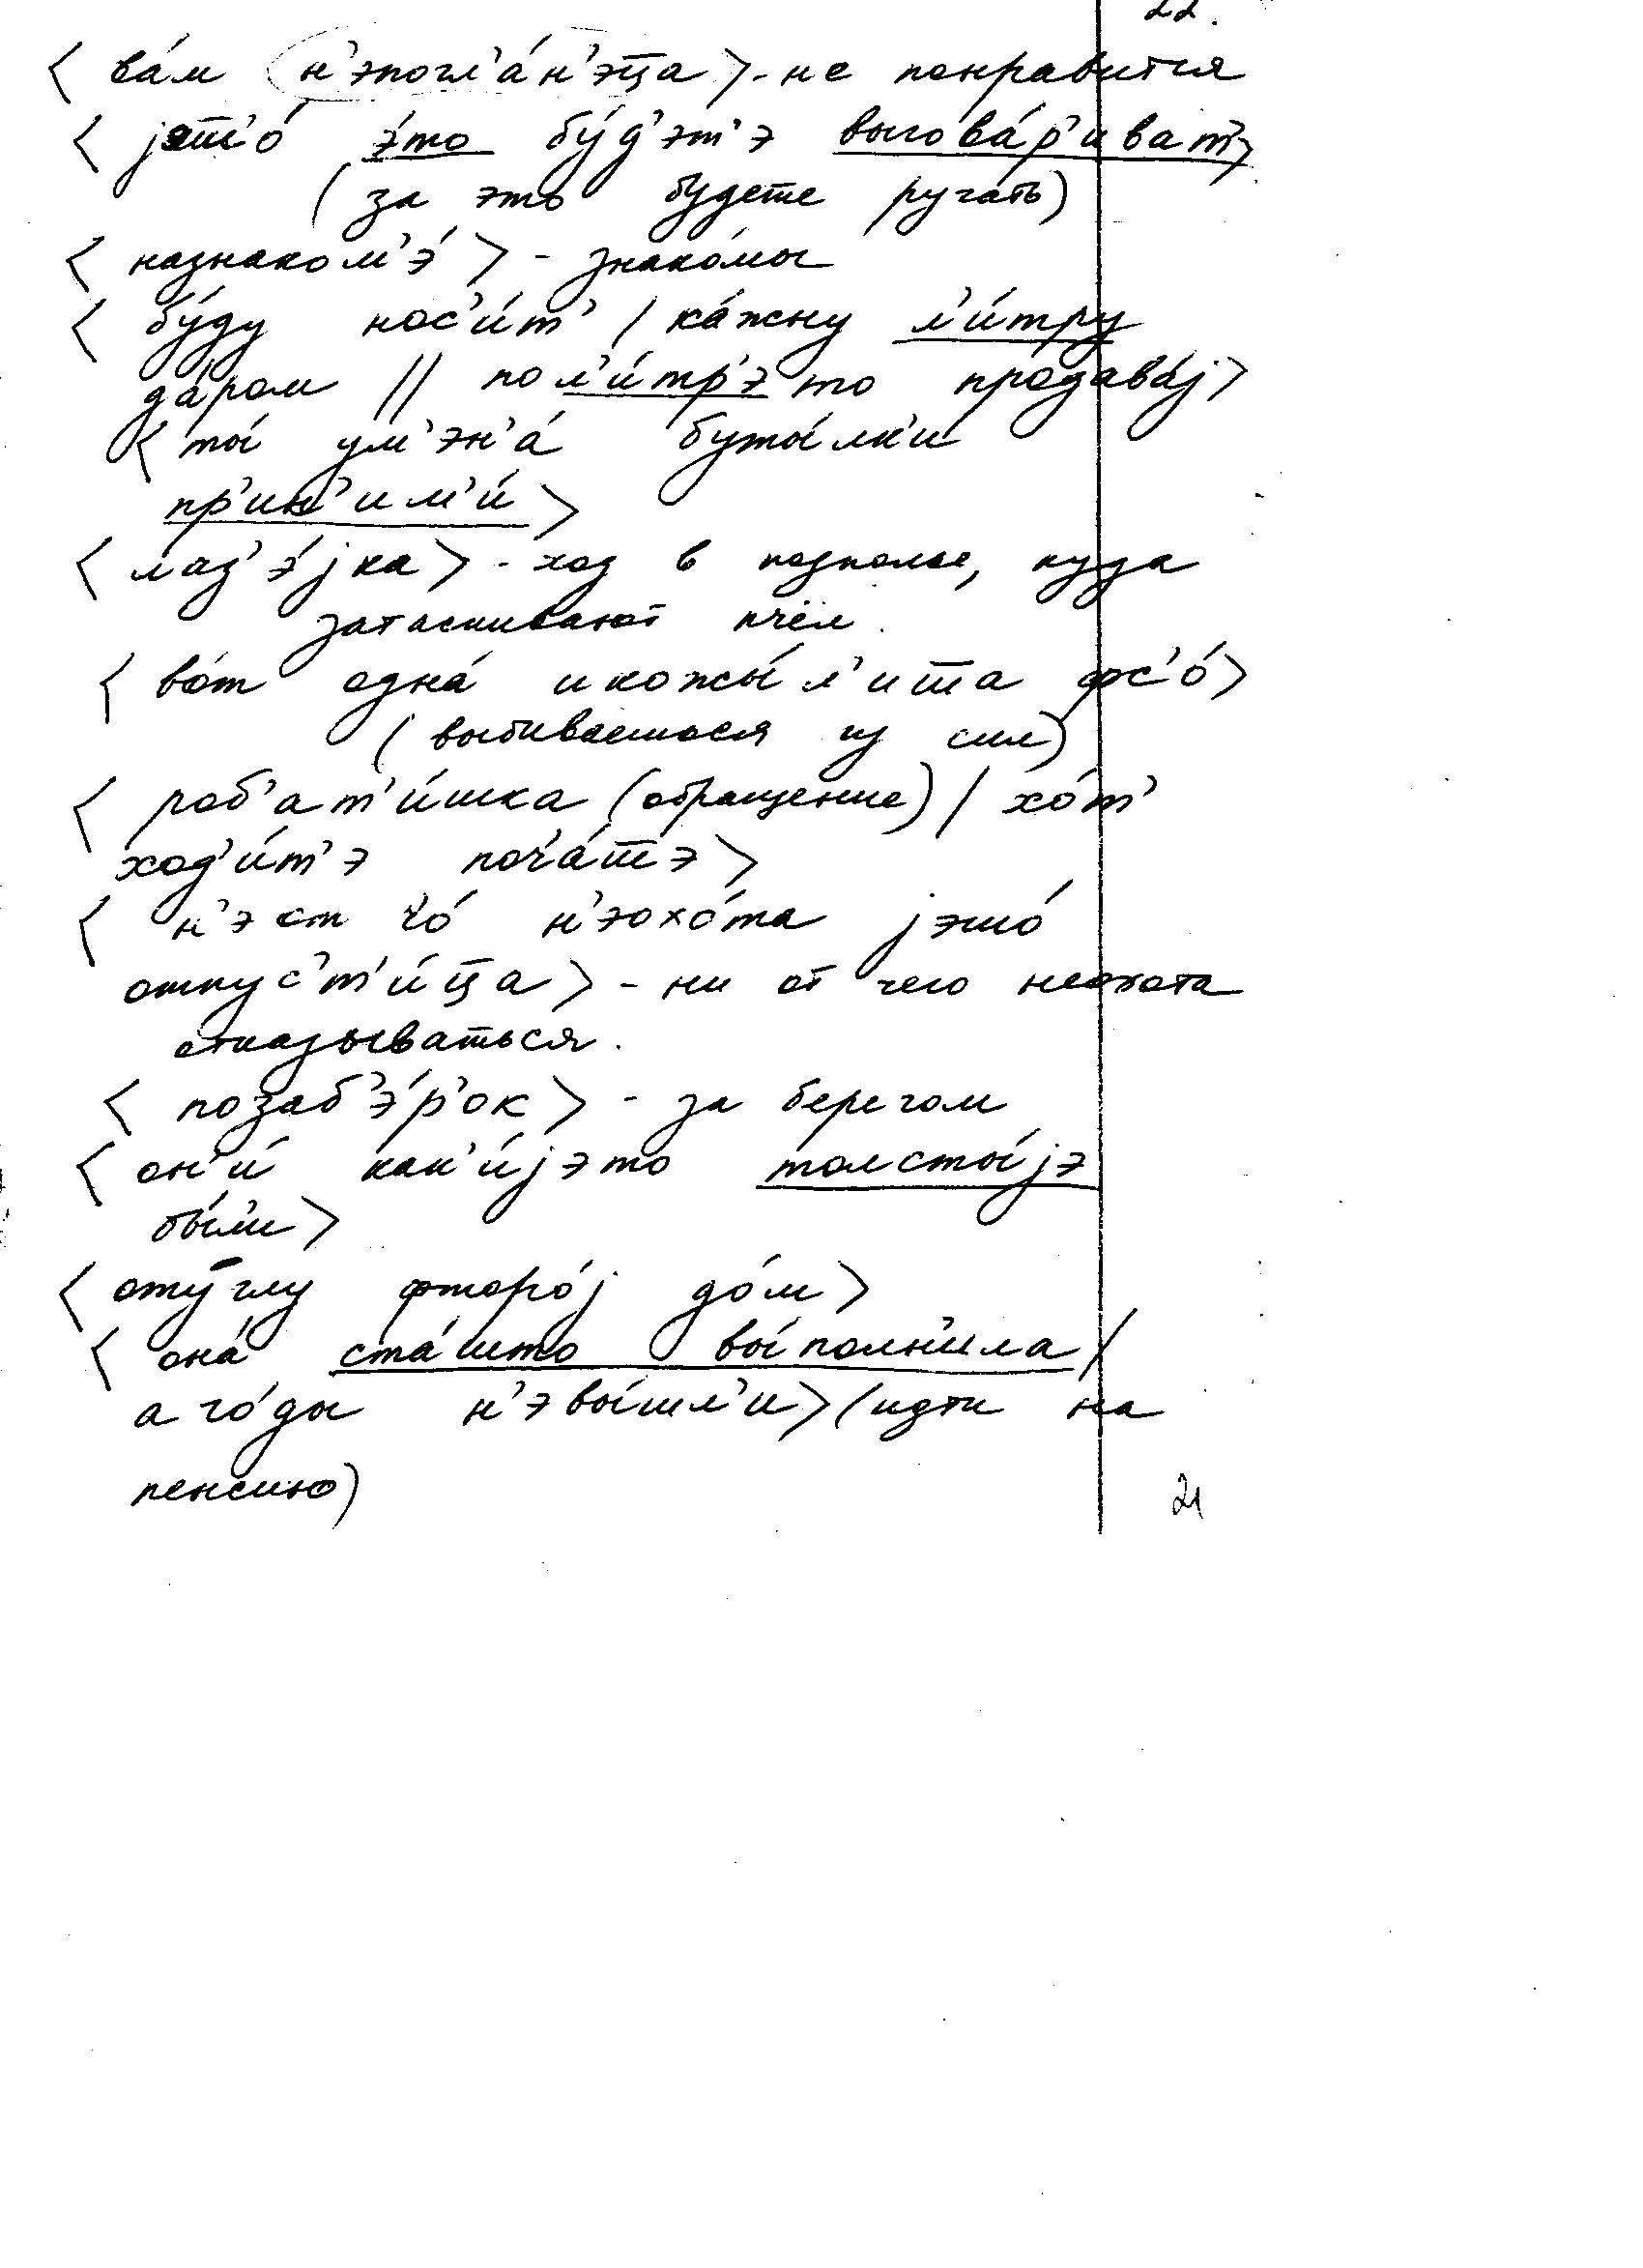 22.
< ва́м н'эпогл'а́н'эц̄а > - не понравится
< jэш̄о́ э́то бу́д'эт'э выгова́р'иват' >
(за это будете ругать)
< назнаком'э́ > - знако́мы
< бу́ду нос'и́т' / ка́жну л'и́тру
да́ром // пол'и́тр'э то продава́j >
< ты́ ум'эн'а́ буты́лк'и
пр'ин'им'и́ >
< лаз'э́jка > - ход в подполье, куда
затаскивают пчёл.
< во́т одна́ икожы́л'иш̄а фс'о́ >
(выбиваешься из сил)
< роб'ат'и́шка (обращение) / хо́т'
ход'и́т'э поч'а́ш̄э >
< н'эст ч'о́ н'эохо́та jэшо́
отпус'т'и́ц̄а > - ни от чего неохота
отказываться.
< позаб'э́р'ок > - за берегом
< он'и́ как'и́jэто толсты́jэ
бы́л'и >
< оту́глу фторо́j до́м >
< она́ ста́што вы́полн'ила /
а го́ды н'эвы́шл'и > (идти на
пенсию)
21